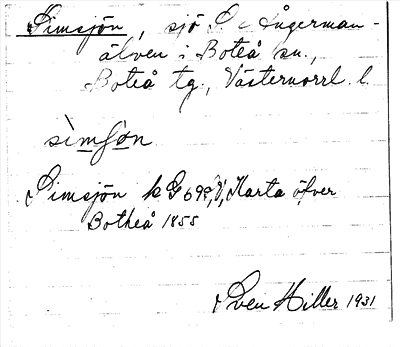 Simsjön, sjö S Ångerman-
älven i Boteå sn.,
Boteå tg., Västernorrl. l.
sìmʃøn
Simsjön k Karta öfver
Botheå 1855
Sven Hiller 1931